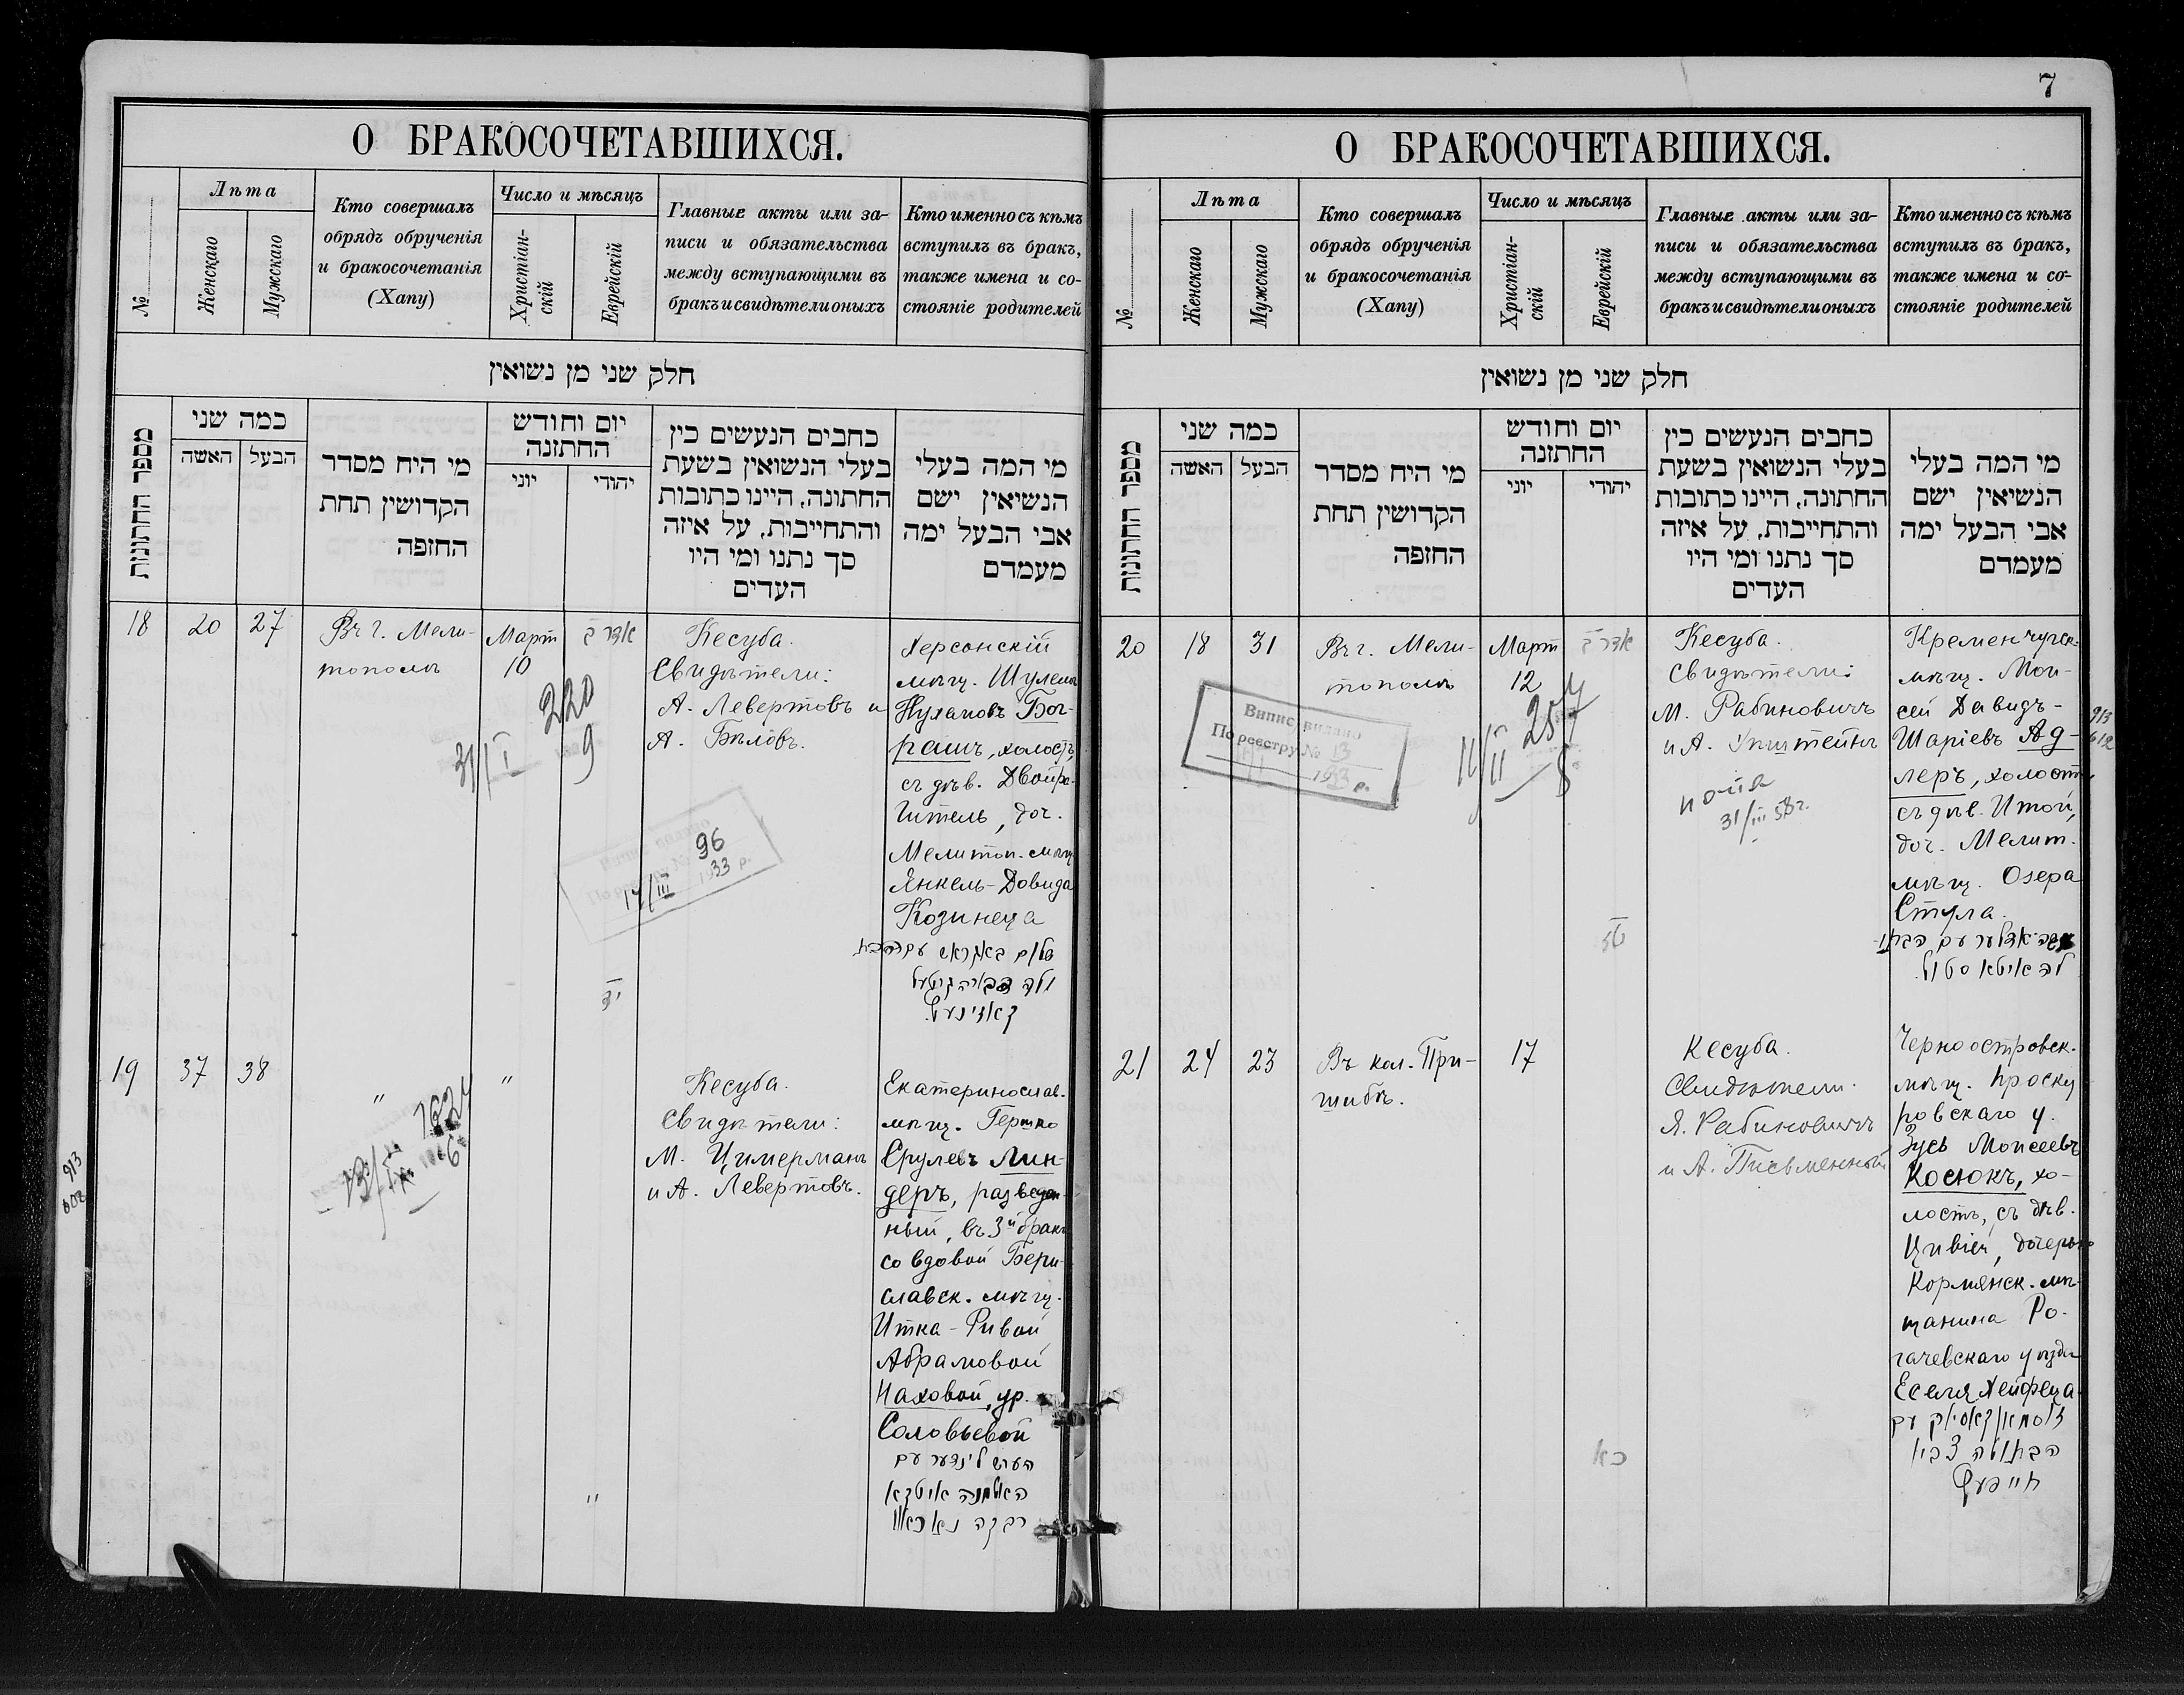 О БРАКОСОЧЕТАВШИХСЯ.
№
Лѣта
Женскаго
Мужскаго
Кто совершалъ
обрядъ обрученія
и бракосочетанія
(Хапу)
Число и мѣсяцъ
Христіан-
скій
Еврейскій
Главные акты или за-
писи и обязательства
между вступающими въ
бракъ и свидѣтели оныхъ
Кто именно съ кѣмъ
вступилъ въ бракъ,
также имена и со-
стояніе родителей
חלק שני מן נשואין
מספר החתונות
כמה שני
האשה
הבעל
מי היח מסדר
הקדושין תחת
החופה
יום וחודש
החתונה
יוני
יהודי
כחבים הנעשים כין
בעלי הנשואין בשעת
החתונה, היינו כתובות
והתחייבות, על איזה
סך נתנו ומי היו
העדים
מי המה בעלי
הנשיאין ישם
אבי הבעל ימה
מעמדם
18
20
27
Въ г. Мели-
тополѣ
Март
10
אדר ב
יד
Кесуба.
Свидѣтели:
А. Левертовъ и
А. Бѣловъ.
Херсонскій
мѣщ. Шулемъ
Нухимовъ Бог-
рашъ, холостъ,
съ дѣв. Двойра-
Гитель, доч.
Мелитоп. мѣщ.
Янкель-Довида
Козинеца
שלום באגראש עם הבת
קאזינעץ
220
31/I
9
96
17/III 1933 р.
19
37
38
"
"
"
Кесуба.
Свидѣтели:
М. Цимерманъ
и А. Левертовъ.
Екатеринослав.
мѣщ. Гершко
Срулевъ Лин-
деръ, разведен-
ный, въ 3й бракъ
со вдовой Бери-
славск. мѣщ.
Итка-Ривой
Абрамовой
Наховой, ур.
Соловьевой
הערש לינדער עם
האלמנה איטקא
רבקה
913
7
О БРАКОСОЧЕТАВШИХСЯ.
№
Лѣта
Женскаго
Мужскаго
Кто совершалъ
обрядъ обрученія
и бракосочетанія
(Хапу)
Число и мѣсяцъ
Христіан-
скій
Еврейскій
Главные акты или за-
писи и обязательства
между вступающими въ
бракъ и свидѣтели оныхъ
Кто именно съ кѣмъ
вступилъ въ бракъ,
также имена и со-
стояніе родителей
חלק שני מן נשואין
מספר החתונות
כמה שני
האשה
הבעל
מי היח מסדר
הקדושין תחת
החופה
יום וחודש
החתונה
יוני
יהודי
כחבים הנעשים כין
בעלי הנשואין בשעת
החתונה, היינו כתובות
והתחייבות, על איזה
סך נתנו ומי היו
העדים
מי המה בעלי
הנשיאין ישם
אבי הבעל ימה
מעמדם
20
18
31
Въ г. Мели-
тополѣ
Март
12
אדר ב
טז
Кесуба.
Свидѣтели:
М. Рабиновичъ
и А. Эпштейнъ
Кременчугск.
мѣщ. Мои-
сей Давидъ-
Шаріевъ Ад-
леръ, холостъ,
съ дѣв. Итой,
доч. Мелит.
мѣщ. Озера
Стула.
משה אדלער עם הבתו-
לה איטא סטול
Випис видано
По реєстру № 13
1933 р.
257
11/II
31/III 58 г.
913
612
21
24
23
Въ кол. При-
шибъ.
17
כא
Кесуба.
Свидѣтели.
Я. Рабиновичъ
и А. Письменный
Черноостровск.
мѣщ. Проску-
ровскаго у.
Зусь Моисеевъ
Косюкъ, хо-
лостъ, съ дѣв.
Цивіей, дочерью
Кормянск. мѣ-
щанина Ро-
гачевскаго уѣзда
Еселя Хейфеца.
זוסמאן קאסיוק עם
הבתולה צביא
חייפעץ